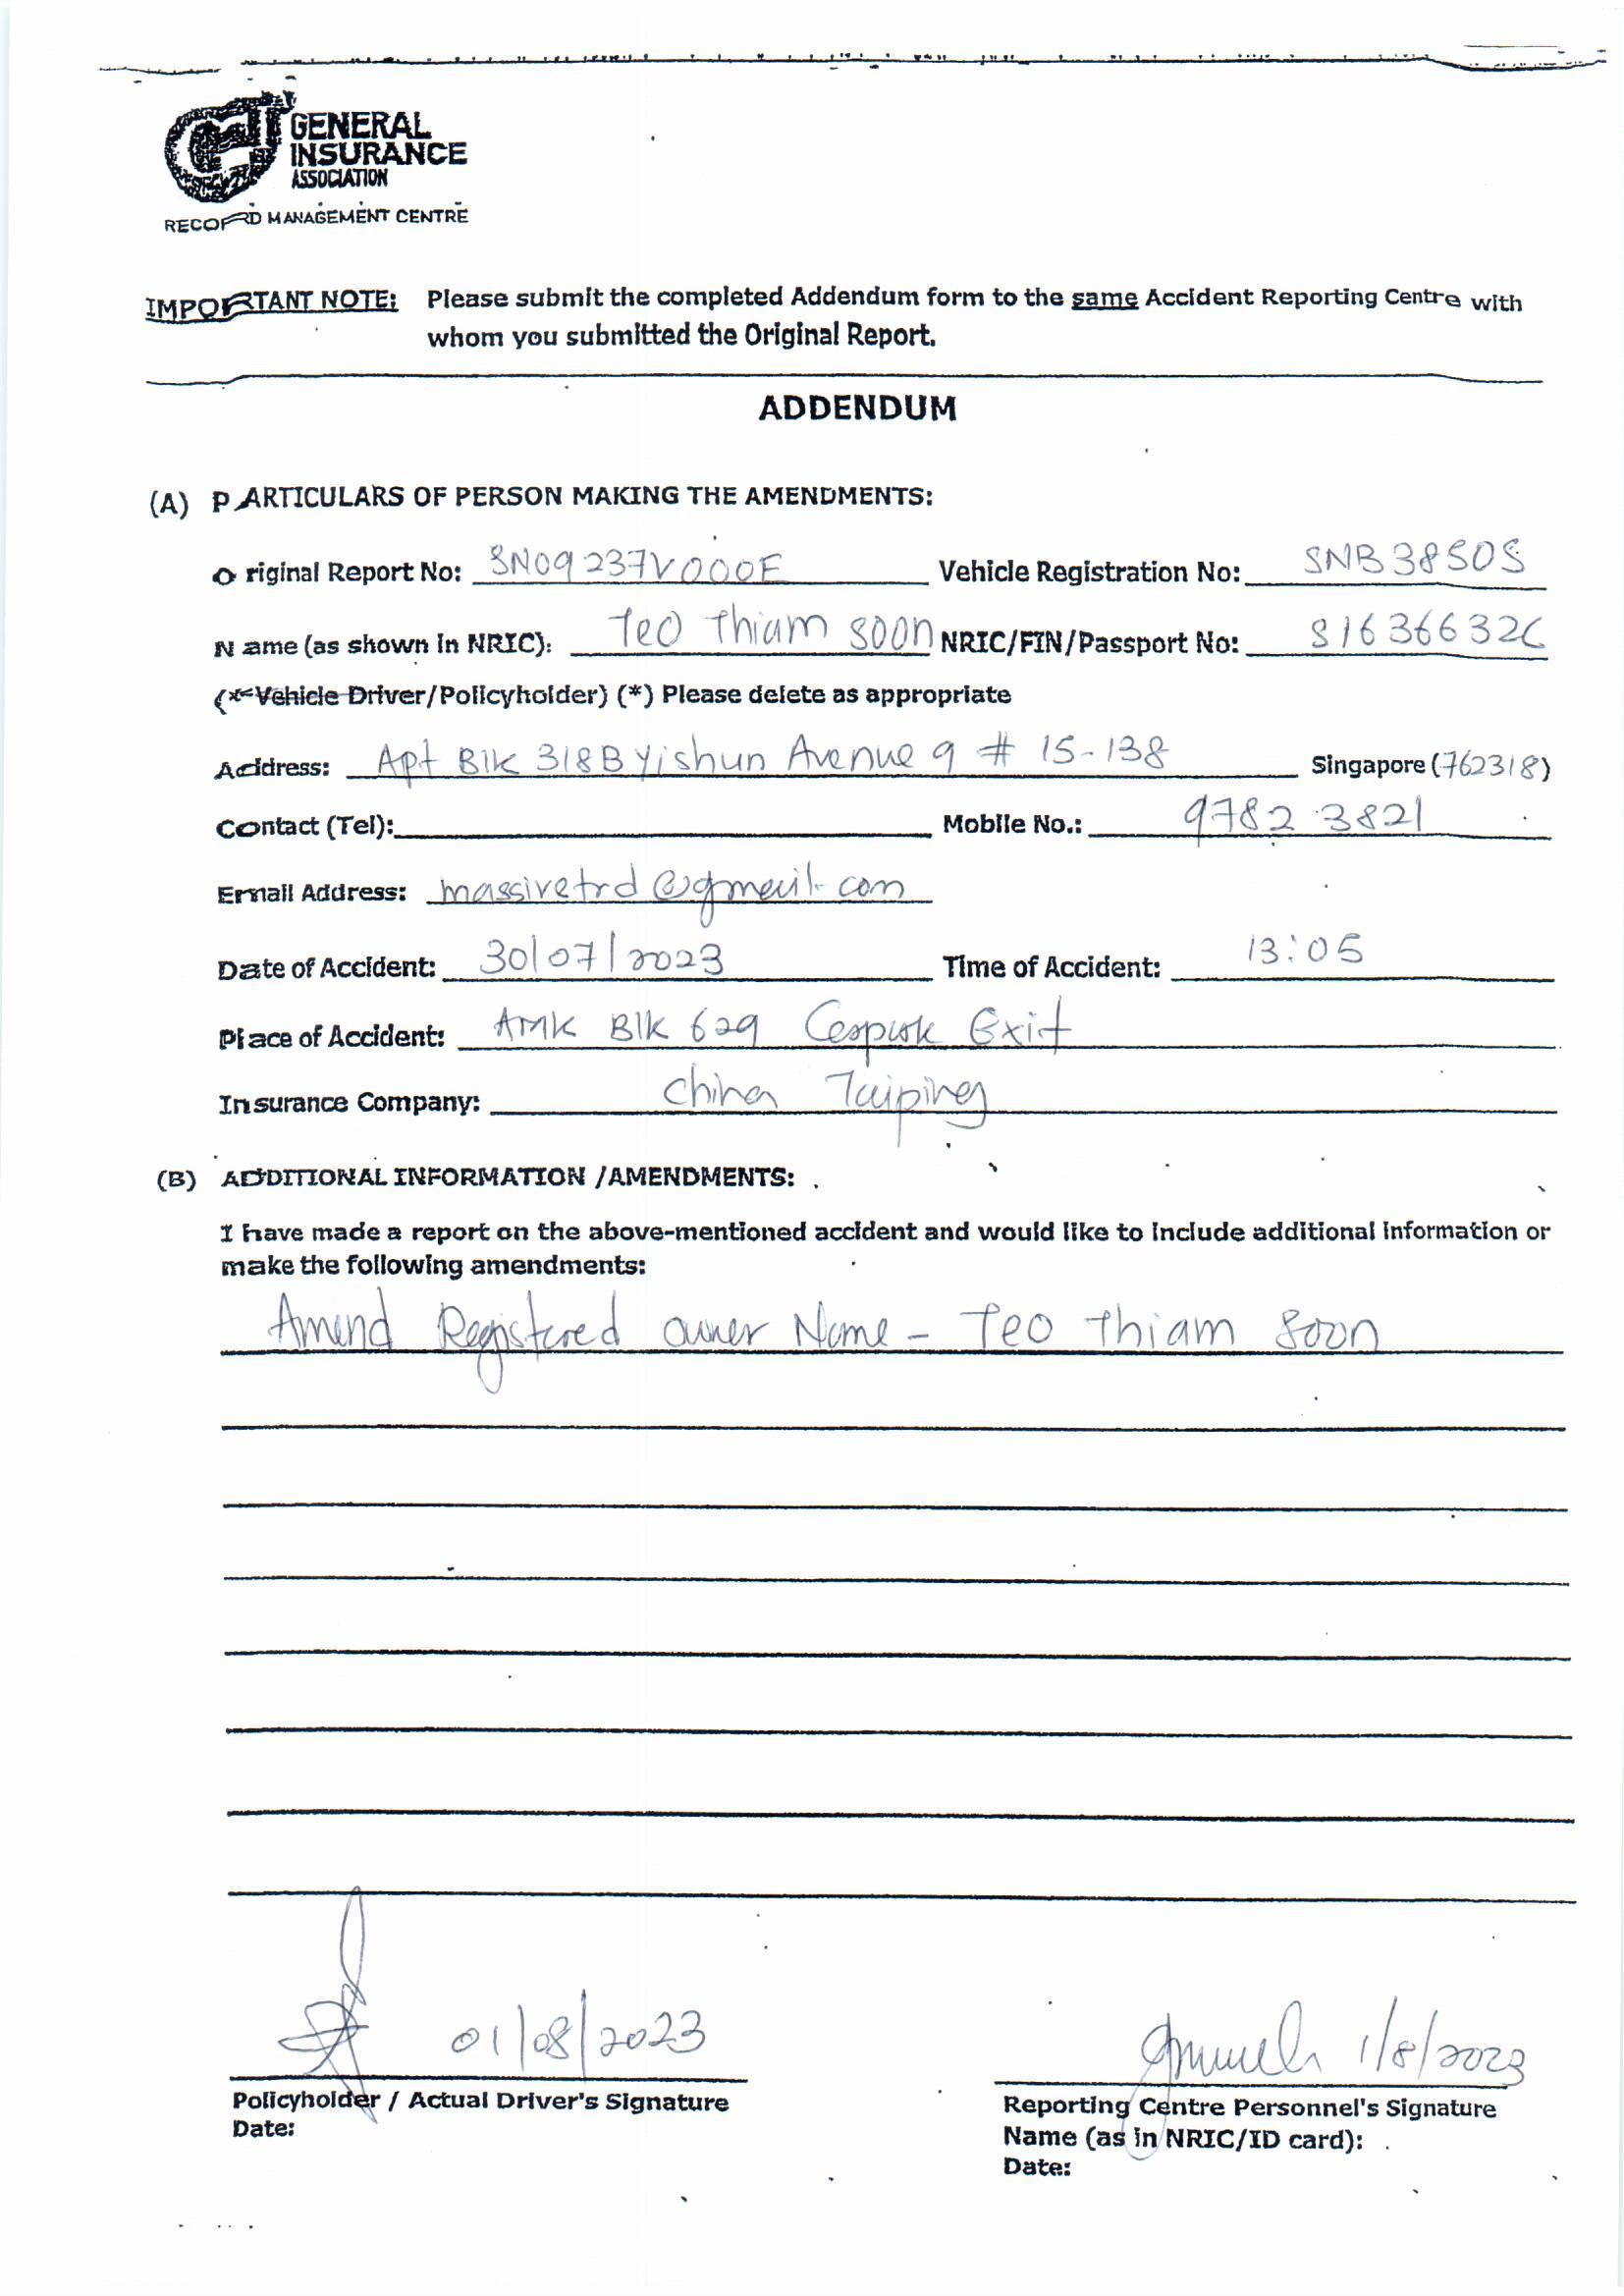 GENERAL
INSURANCE
ASSOCIATION
RECORD MANAGEMENT CENTRE
IMPORTANT NOTE: Please submit the completed Addendum form to the same Accident Reporting Centre with
whom you submitted the Original Report.
ADDENDUM
(A) PARTICULARS OF PERSON MAKING THE AMENDMENTS:
Original Report No: SN09237V000E Vehicle Registration No: SNB3850S
Name (as shown in NRIC): Teo Thiam Soon NRIC/FIN/Passport No: S1636632C
(*Vehicle Driver/Policyholder) (*) Please delete as appropriate
Address: Apt Blk 318B Yishun Avenue 9 # 15-138 Singapore (762318)
Contact (Tel): Mobile No.: 9782 3821
Email Address: massivetrd@gmail.com
Date of Accident: 30/07/2023 Time of Accident: 13:05
Place of Accident: AMK Blk 629 Exit
Insurance Company: China Taiping
(B) ADDITIONAL INFORMATION /AMENDMENTS:
I have made a report on the above-mentioned accident and would like to include additional information or
make the following amendments:
Amend Registered owner Name - Teo Thiam Soon
01/08/2023
1/8/2023
Policyholder / Actual Driver's Signature
Date:
Reporting Centre Personnel's Signature
Name (as in NRIC/ID card):
Date: